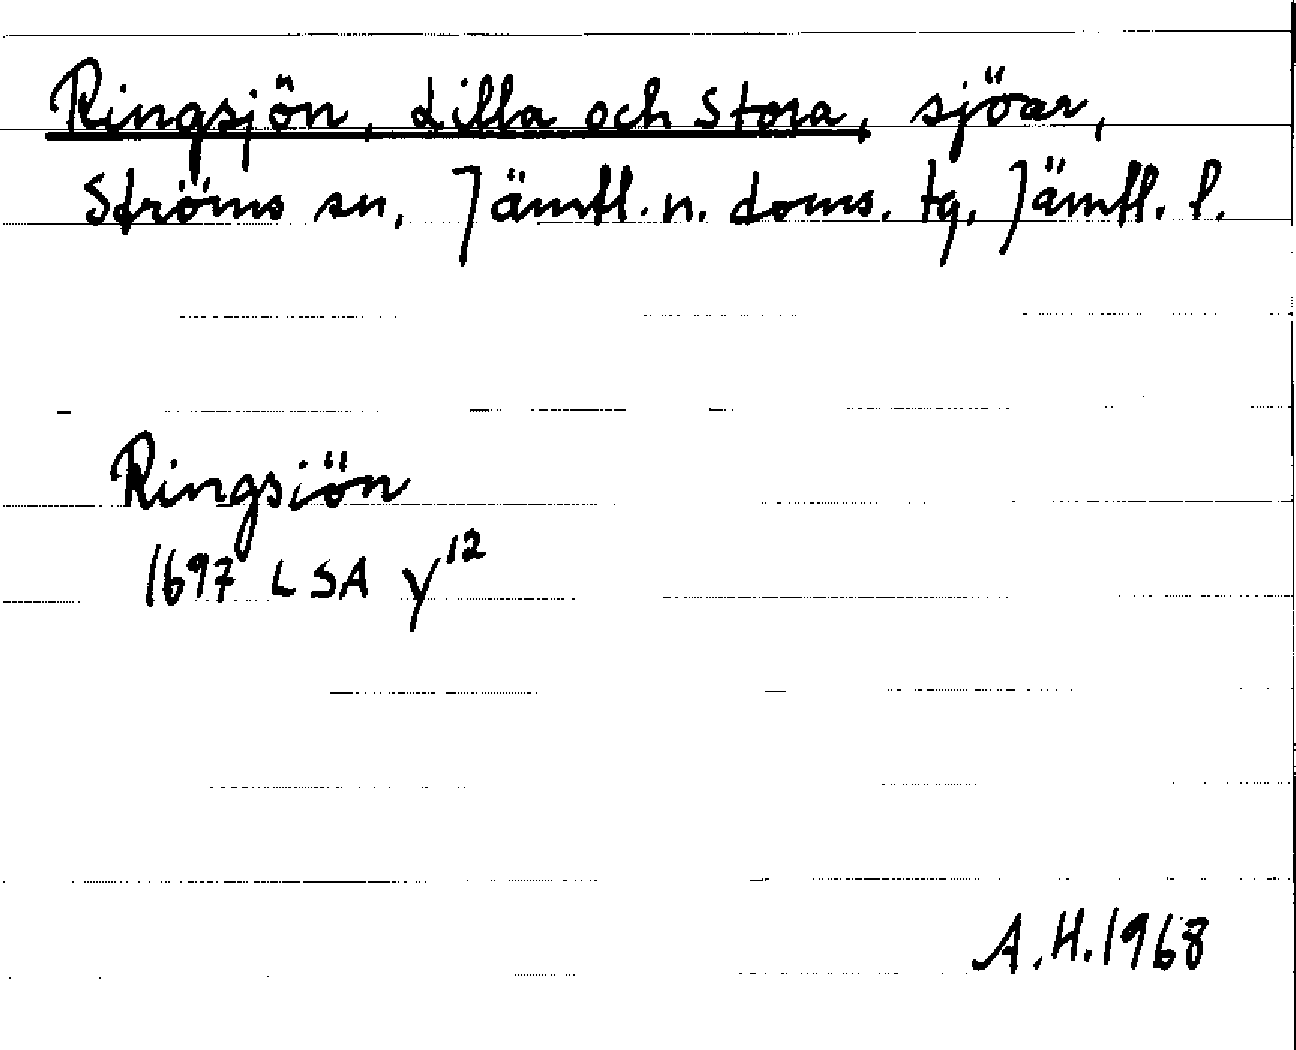 Ringsjön, Lilla och Stora, sjöar,
Ströms sn, Jämtl. n. doms. tg, Jämtl. l.
Ringsiön
1697 LSA Y¹²
A. H. 1968